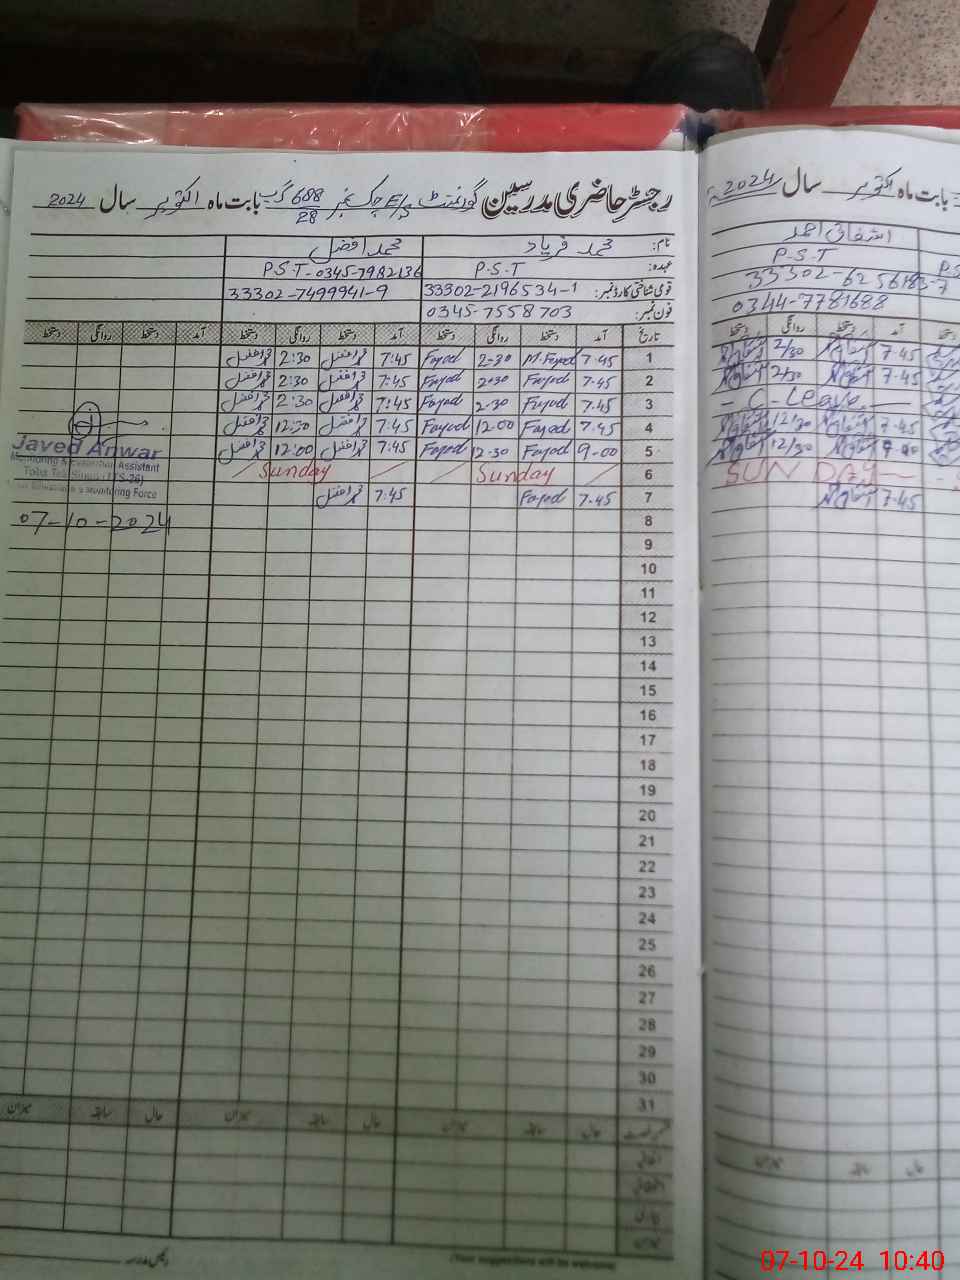 رجسٹر حاضری مدرسین گورنمنٹ E/S چک نمبر 688/28 گ ب بابت ماہ اکتوبر سال 2024
نام: محمد فریاد محمد افضل
عہدہ: P.S.T P.S.T-0345-7982136
قومی شناختی کارڈ نمبر: 33302-2196534-1 33302-7499941-9
فون نمبر: 0345-7558703
تاریخ آمد دستخط روانگی دستخط آمد دستخط روانگی دستخط آمد دستخط روانگی دستخط
1 7-45 M.Fayad 2-30 Fayad 7:45 محمد افضل 2:30 محمد افضل
2 7-45 Fayad 2-30 Fayad 7:45 محمد افضل 2:30 محمد افضل
3 7-45 Fayad 2-30 Fayad 7:45 محمد افضل 2:30 محمد افضل
4 7-45 Fayad 12-00 Fayad 7:45 محمد افضل 12:30 محمد افضل
5 9-00 Fayad 12-30 Fayad 7:45 محمد افضل 12:00 محمد افضل
6 Sunday Sunday
7 7-45 Fayad 7:45 محمد افضل
8
9
10
11
12
13
14
15
16
17
18
19
20
21
22
23
24
25
26
27
28
29
30
31
حال سابقہ میزان حال سابقہ میزان حال سابقہ میزان
اتفاقی
میزان
Javed Anwar
Monitoring & Evaluation Assistant
Toba Tek Singh (TTS-26)
Monitoring Force
07-10-2024
بابت ماہ اکتوبر سال 2024
اشفاق احمد
P.S.T
33302-6256183-7
0344-7781688
آمد دستخط روانگی دستخط
7-45 اشفاق 2/30 اشفاق
7-45 اشفاق 2/30 اشفاق
- C-Leave
7-45 اشفاق 12/30 اشفاق
اشفاق 12/30 اشفاق
SUN DAY
7-45 اشفاق
حال سابقہ میزان
07-10-24 10:40